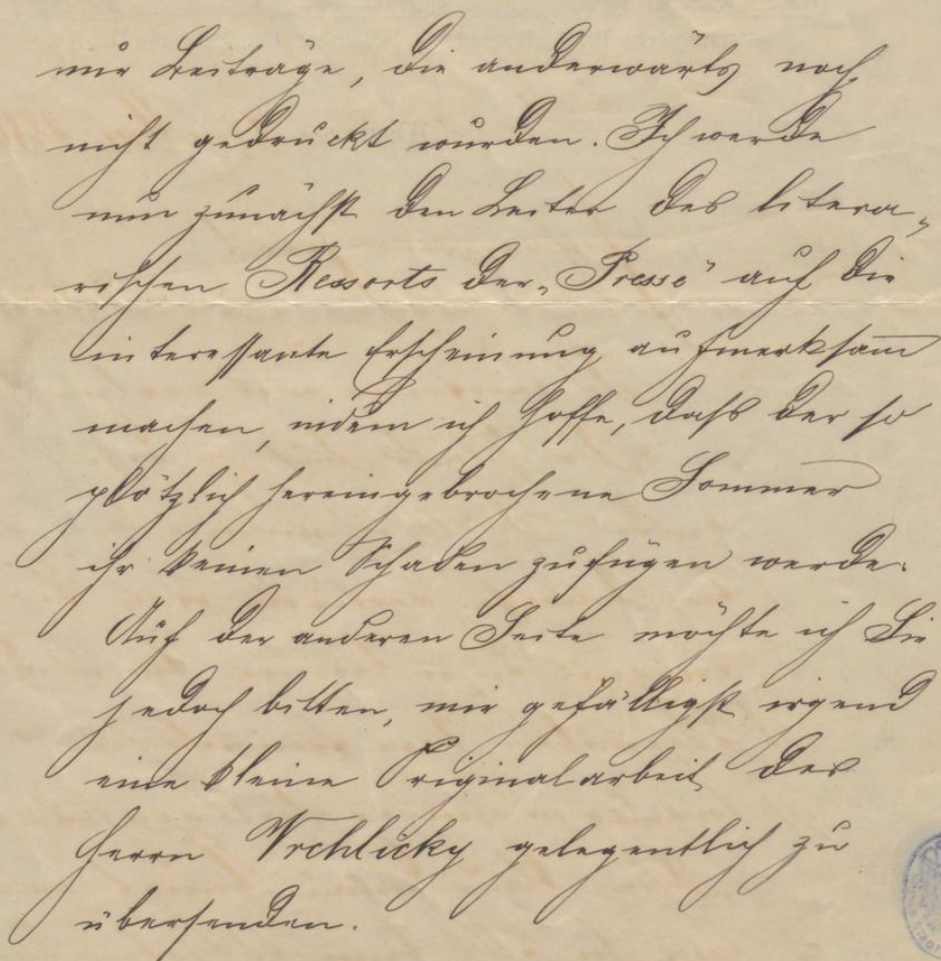 nur Beiträge, die anderwärts noch
nicht gedruckt wurden. Ich werde
nun zunächst den Leiter des litera-
rischen Ressorts der „Presse“ auf die
interessante Erscheinung aufmerksam
machen, indem ich hoffe, daß der so
plötzlich hereingebrochene Sommer
ihr keinen Schaden zufügen werde.
Auf der anderen Seite möchte ich Sie
jedoch bitten, mir gefälligst irgend
eine kleine Originalarbeit des
Herrn Vrchlicky gelegentlich zu
übersenden.